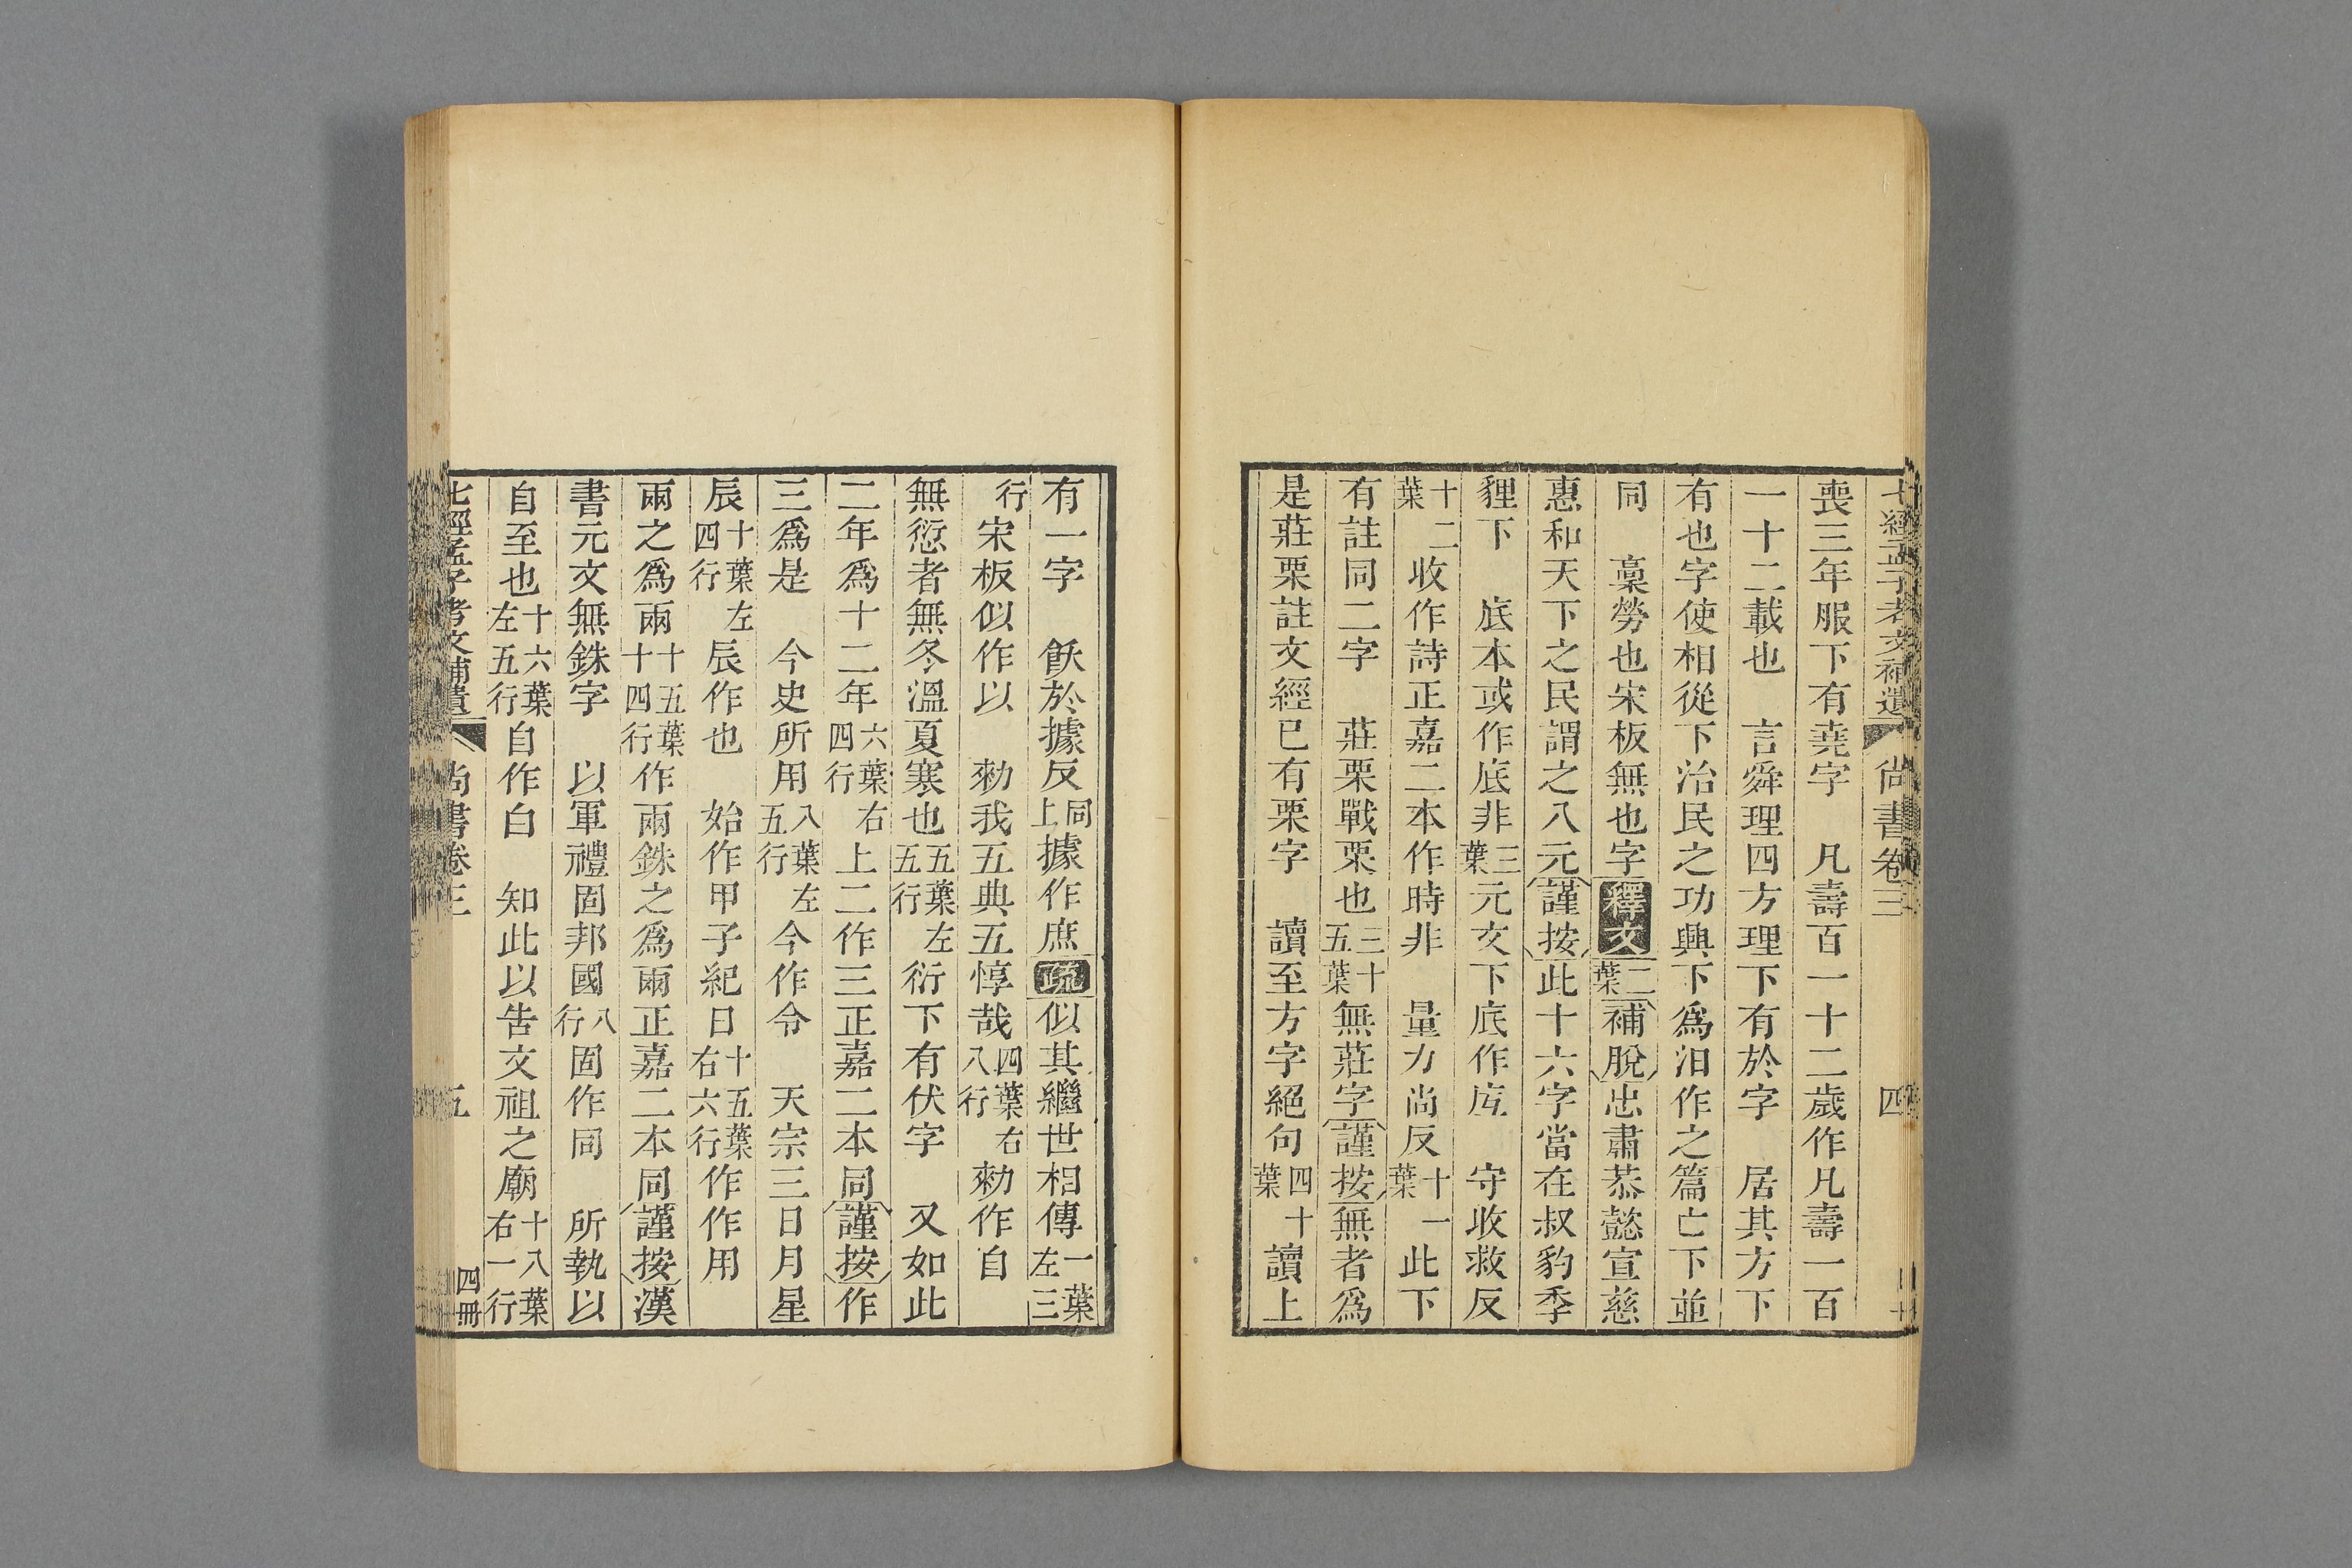 七經孟子考文補遺 尚書卷三 四
喪三年服下有堯字 凡壽百一十二歲作凡壽一百
一十二載也 言舜理四方理下有於字 居其方下
有也字使相從下治民之功興下爲汨作之篇亡下並
同 稾勞也宋板無也字釋文二葉補脫忠肅恭懿宣慈
惠和天下之民謂之八元謹按此十六字當在叔豹季
貍下 底本或作底非三葉元文下底作厎 守收救反
十二葉收作詩正嘉二本作時非 量力尚反十一葉此下
有註同二字 莊栗戰栗也三十五葉無莊字謹按無者爲
是莊栗註文經已有栗字 讀至方字絕句四十葉讀上
有一字 飫於據反同上據作庶疏似其繼世相傳一葉左三
行宋板似作以 勑我五典五惇哉四葉右八行勑作自
無愆者無冬溫夏寒也五葉左五行衍下有伏字 又如此
二年爲十二年六葉右四行上二作三正嘉二本同謹按作
三爲是 今史所用八葉左五行今作令 天宗三日月星
辰十葉左四行辰作也 始作甲子紀日十五葉右六行作作用
兩之爲兩十五葉十四行作兩銖之爲兩正嘉二本同謹按漢
書元文無銖字 以軍禮固邦國八行固作同 所執以
自至也十六葉左五行自作白 知此以告文祖之廟十八葉右一行
七經孟子考文補遺 尚書卷三 五 四冊